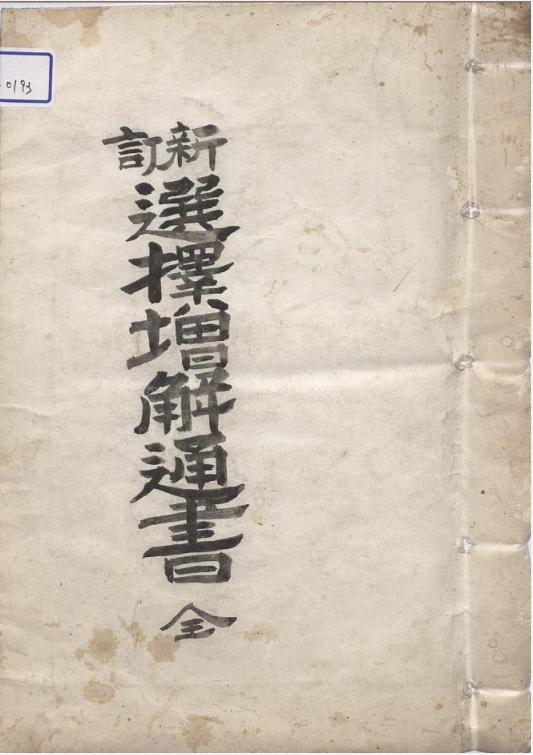 新訂
選擇增解通書 全
0193